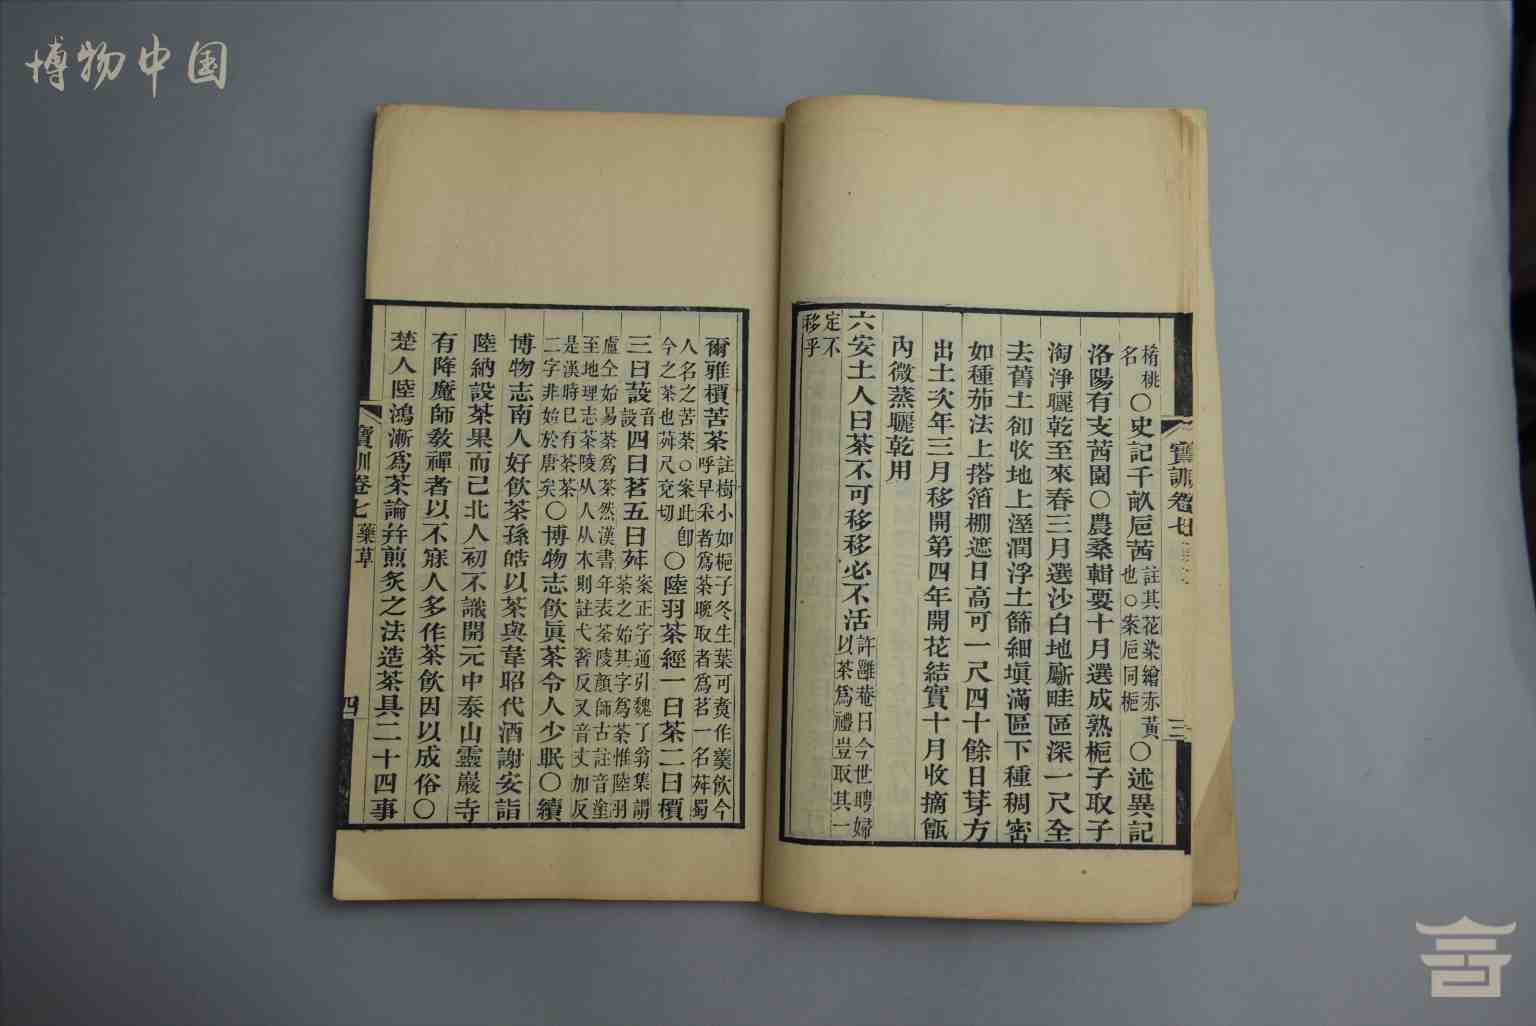 博物中国
梼桃
名
○史記千畝巵茜註其花染繒赤黃
也○案巵同梔
○述異記
洛陽有支茜園○農桑輯要十月選成熟梔子取子
淘淨曬乾至來春三月選沙白地斸畦區深一尺全
去舊土卻收地上溼潤浮土篩細塡滿區下種稠密
如種茄法上搭箔棚遮日高可一尺四十餘日芽方
出土次年三月移開第四年開花結實十月收摘甑
內微蒸曬乾用
六安土人曰茶不可移移必不活許雝菴曰今世聘婦
以茶爲禮豈取其一
定不
移乎
寶訓卷七
三
爾雅檟苦茶註樹小如梔子冬生葉可煑作羹飲今
呼早采者爲茶晚取者爲茗一名荈蜀
人名之苦茶○案此卽
今之茶也荈尺兗切
○陸羽茶經一曰茶二曰檟
三曰蔎音
設
四曰茗五曰荈案正字通引魏了翁集謂
茶之始其字爲荼惟陸羽
盧仝始易荼爲茶然漢書年表荼陵顏師古註音塗
至地理志茶陵从人从木則註弋奢反又音丈加反
是漢時已有荼茶
二字非始於唐矣
○博物志飲眞茶令人少眠○續
博物志南人好飲茶孫皓以茶與韋昭代酒謝安詣
陸納設茶果而已北人初不識開元中泰山靈巖寺
有降魔師敎禪者以不寐人多作茶飲因以成俗○
楚人陸鴻漸爲茶論幷煎炙之法造茶具二十四事
寶訓卷七
藥草
四